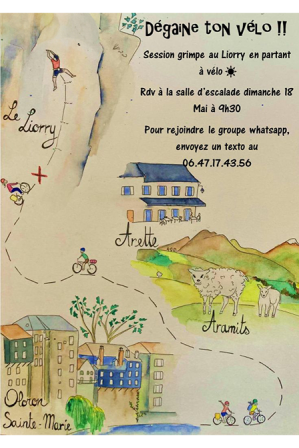 Dégaine ton vélo !!
Session grimpe au Liorry en partant
à vélo ☀
Rdv à la salle d'escalade dimanche 18
Mai à 9h30
Pour rejoindre le groupe whatsapp,
envoyez un texto au
06.47.17.43.56
Le Liorry
Arette
Aramits
Oloron
Sainte-Marie